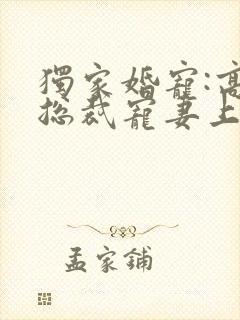 獨家婚寵:高
總裁寵妻上
孟家鋪